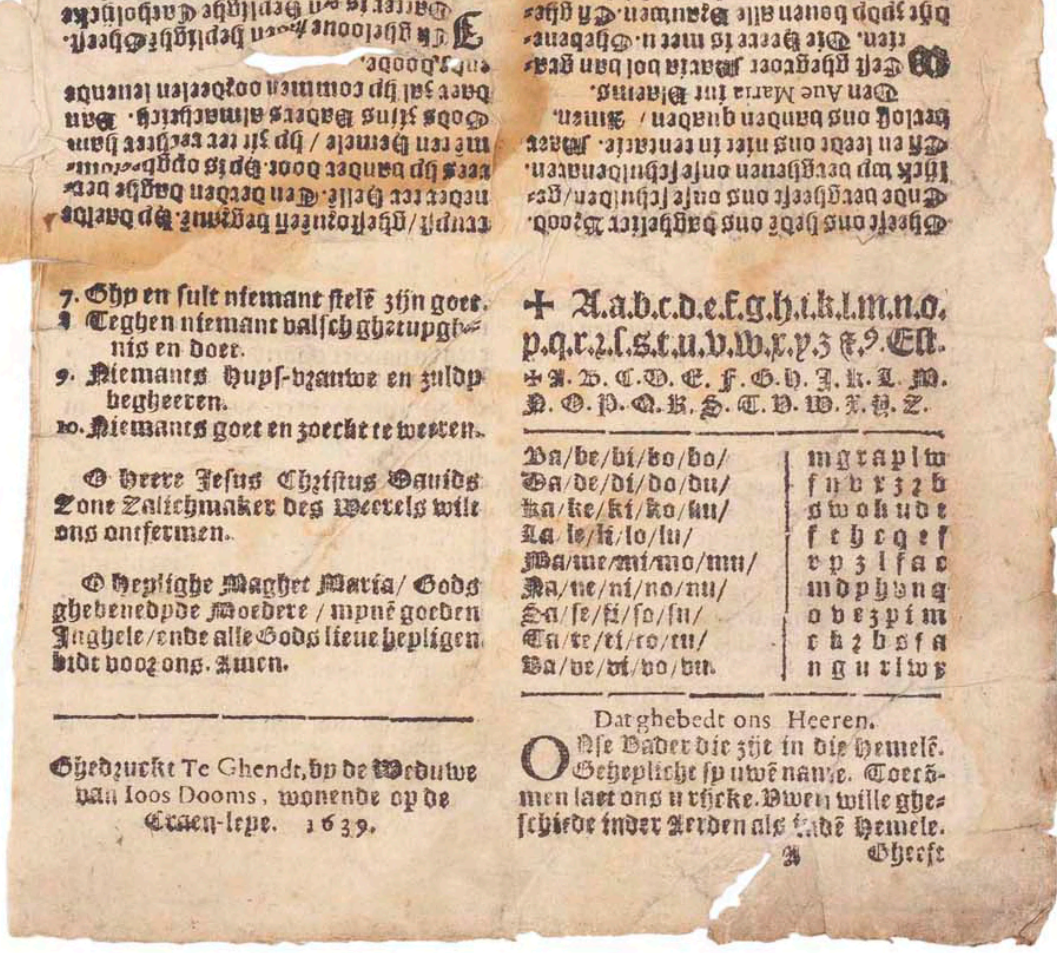 Gheeft ons hedē ons daghelicx Brood.
Ende vergheeft ons onse schulden/ge-
lijck wy vergheuen onse schuldenaren.
Eñ en leedt ons niet in tentatie. Maer
verlost ons vanden quaden / Amen.
Den Aue Maria int Vlaems.
WEest ghegroet Maria vol van gra-
tien. Die Heere is met u. Ghebene-
dijt zydy bouen alle Vrauwen. Eñ ghe-
cruyst/ghestoruēn begrauē. Hy daelde
neder ter Helle. Ten derden daghe ver-
rees hy vander doot. Hy is opgheclom-
men ten Hemele / hy zit ter rechter hant
Gods zijns Vaders almachtich. Van
daer sal hy commen oordeelen leuende
ende doode.
ICk gheloove heylighē Gheest.
Datter is een Heylighe Catholijcke
7. Ghy en sult niemant stelē zijn goet.
8 Teghen niemant valsch ghetuyghe-
nis en doet.
9. Niemants Huys-vrauwe en zuldy
begheeren.
10. Niemants goet en zoeckt te weeren.
O Heere Jesus Christus Davids
Zone Zalichmaker des Weerels wilt
ons ontfermen.
O Heylighe Maghet Maria/ Gods
ghebenedyde Moedere / mynē goeden
Inghele/ende alle Gods lieue heyligen
bidt voor ons. Amen.
Ghedruckt Te Ghendt, by de Weduwe
van Ioos Dooms, wonende op de
Craen-leye. 1639.
✠ A.a.b.c.d.e.f.g.h.i.k.l.m.n.o.
p.q.r.ꝛ.ſ.s.t.u.v.w.x.y.z &.ꝯ. Est.
✠ A. B. C. D. E. F. G. H. I. K. L. M.
N. O. P. Q. R. S. T. V. W. X. Y. Z.
Ba/be/bi/bo/bo/ m g r a p l w
Da/de/di/do/du/ f n v x z ꝛ b
Ka/ke/ki/ko/ku/ s w o k u d e
La/le/li/lo/lu/ f c h c q e f
Ma/me/mi/mo/mu/ r p z l f a c
Na/ne/ni/no/nu/ m d p h v n q
Sa/se/si/so/su/ o v e z p i m
Ta/te/ti/to/tu/ c k ꝛ b s f a
Va/ve/vi/vo/vu. n g u r l w y
Dat ghebedt ons Heeren.
ONse Vader die zijt in die Hemelē.
Geheylicht sy uwē name. Toecō-
men laet ons u rijcke. Vwen wille ghe-
schiede inder Aerden als indē Hemele.
A Gheeft